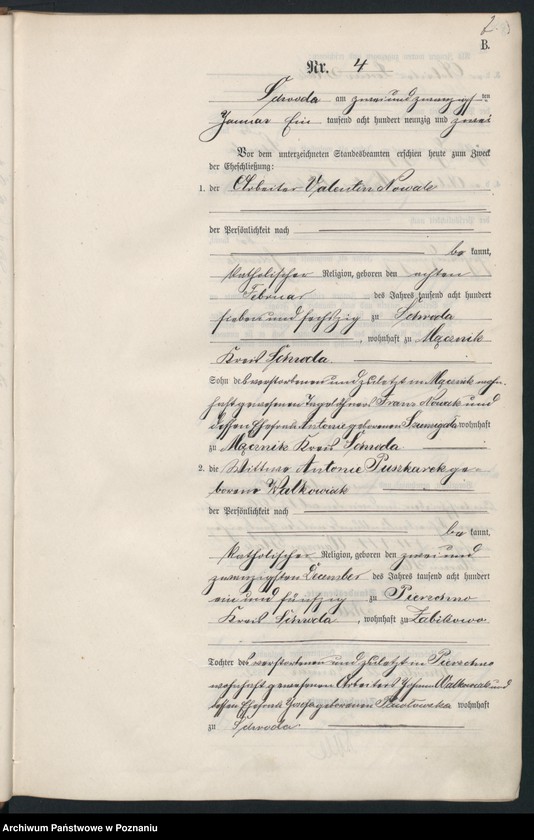 2
B.
Nr. 4
Schroda am zwei und zwanzigsten
Januar Ein tausend acht hundert neunzig und zwei
Vor dem unterzeichneten Standesbeamten erschien heute zum Zweck
der Eheschließung:
1. der Arbeiter Valentin Nowak
der Persönlichkeit nach
be kannt,
katholischer Religion, geboren den achten
Februar des Jahres tausend acht hundert
sieben und sechszig zu Schroda
, wohnhaft zu Mącznik
Kreis Schroda
Sohn des verstorbenen und zuletzt in Mącznik wohn-
haft gewesenen Tagelöhners Franz Nowak und
dessen Ehefrau Antonie geborenen Szumigala wohnhaft
zu Mącznik Kreis Schroda
2. die Wittwe Antonie Puszkarek ge-
borene Walkowiak
der Persönlichkeit nach
be kannt,
katholischer Religion, geboren den zwei und
zwanzigsten December des Jahres tausend acht hundert
ein und fünfzig zu Pierzchno
Kreis Schroda, wohnhaft zu Zabikowo
Tochter des verstorbenen und zuletzt in Pierzchno
wohnhaft gewesenen Arbeiters Johann Walkowiak und
dessen Ehefrau geborenen wohnhaft
zu Schroda
Archiwum Państwowe w Poznaniu